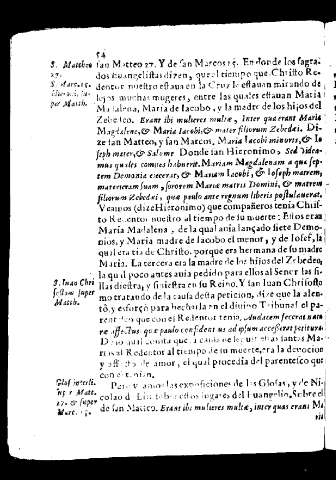 54
S. Mattheo
27.
S. Marc. 15.
san Matteo 27. Y de san Marcos 15. En donde los sagra-
dos Euangelistas dizen, que al tiempo que Christo Re-
dentor nuestro estaua en la Cruz le estauan mirando de
lejos muchas mugeres, entre las quales estauan Maria
Madalena, Maria de Iacobo, y la madre de los hijos del
Zebedeo. Erant ibi mulieres multæ, Inter quas erant Maria
Magdalene, & Maria Iacobi, & mater filiorum Zebedæi. Di-
ze san Matteo, y san Marcos, Maria Iacobi minoris, & Io
seph mater, & Salome Donde san Hieronimo, Sed videa-
mus quales comites habuerit, Mariam Magdalenam a qua sep-
tem Demonia eiecerat, & Mariam Iacobi, & Ioseph matrem,
materteram suam, sororem Mariæ matris Domini, & matrem
filiorum Zebedæi, quæ paulo ante regnum liberis postulauerat.
Veamos (dize Hieronimo) que compañeros tenia Chris-
to Redentor nuestro al tiempo de su muerte: Estos eran
Maria Madalena, de la qual auia lançado siete Demo-
nios, y Maria madre de Iacobo el menor, y de Iosef, la
qual era tia de Christo, porque era hermana de su madre
Maria. La tercera era la madre de los hijos del Zebedeo,
la qual poco antes auia pedido para ellos al Señor las si-
llas diestra, y siniestra en su Reyno. Y san Iuan Chrisosto
mo tratando de la causa desta peticion, dize que la alen-
tò, y esforçò para hechurla en el diuino Tribunal el pa-
rentesco que con el Redentor tenia,
S. Iuan Chri
sostom. super
Matth.
Pero veamos las exposiciones de las Glosas, y de Ni-
colao de Lira sobre estos lugares del Euangelio. Sobre el
de san Matteo. Erant ibi mulieres multæ, inter quas erant M
Glos. interli-
27. & super
Marc. 15.